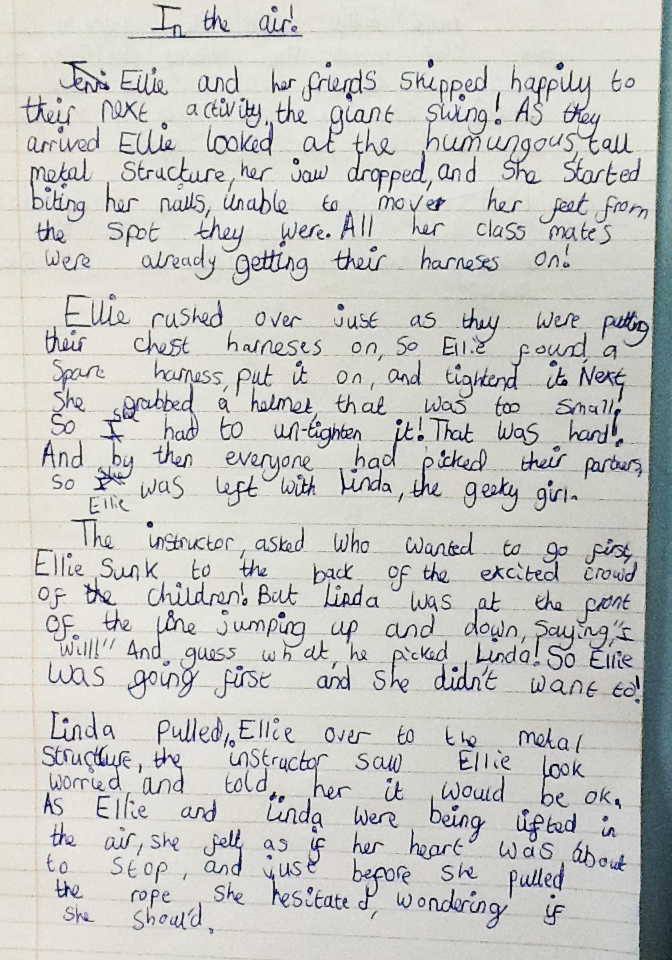 In the air!
Ellie and her friends skipped happily to
their next activity, the giant swing! As they
arrived Ellie looked at the humungous, tall
metal structure, her jaw dropped, and she started
biting her nails, unable to move her feet from
the spot they were. All her class mates
were already getting their harneses on!
Ellie rushed over just as they were putting
their chest harneses on, so Ellie found a
spare harness, put it on, and tightend it. Next,
she grabbed a helmet, that was too small,
so she had to un-tighten it! That was hard!
And by then everyone had picked their partners,
so Ellie was left with Linda, the geeky girl.
The instructor, asked who wanted to go first,
Ellie sunk to the back of the excited crowd
of children! But Linda was at the front
of the line jumping up and down, saying, "I
will!" And guess what, he picked Linda! So Ellie
was going first and she didn't want to!
Linda pulled, Ellie over to the metal
structure, the instructor saw Ellie look
worried and told, her it would be ok.
As Ellie and Linda were being lifted in
the air, she felt as if her heart was about
to stop, and just before she pulled
the rope she hesitated, wondering if
she should.